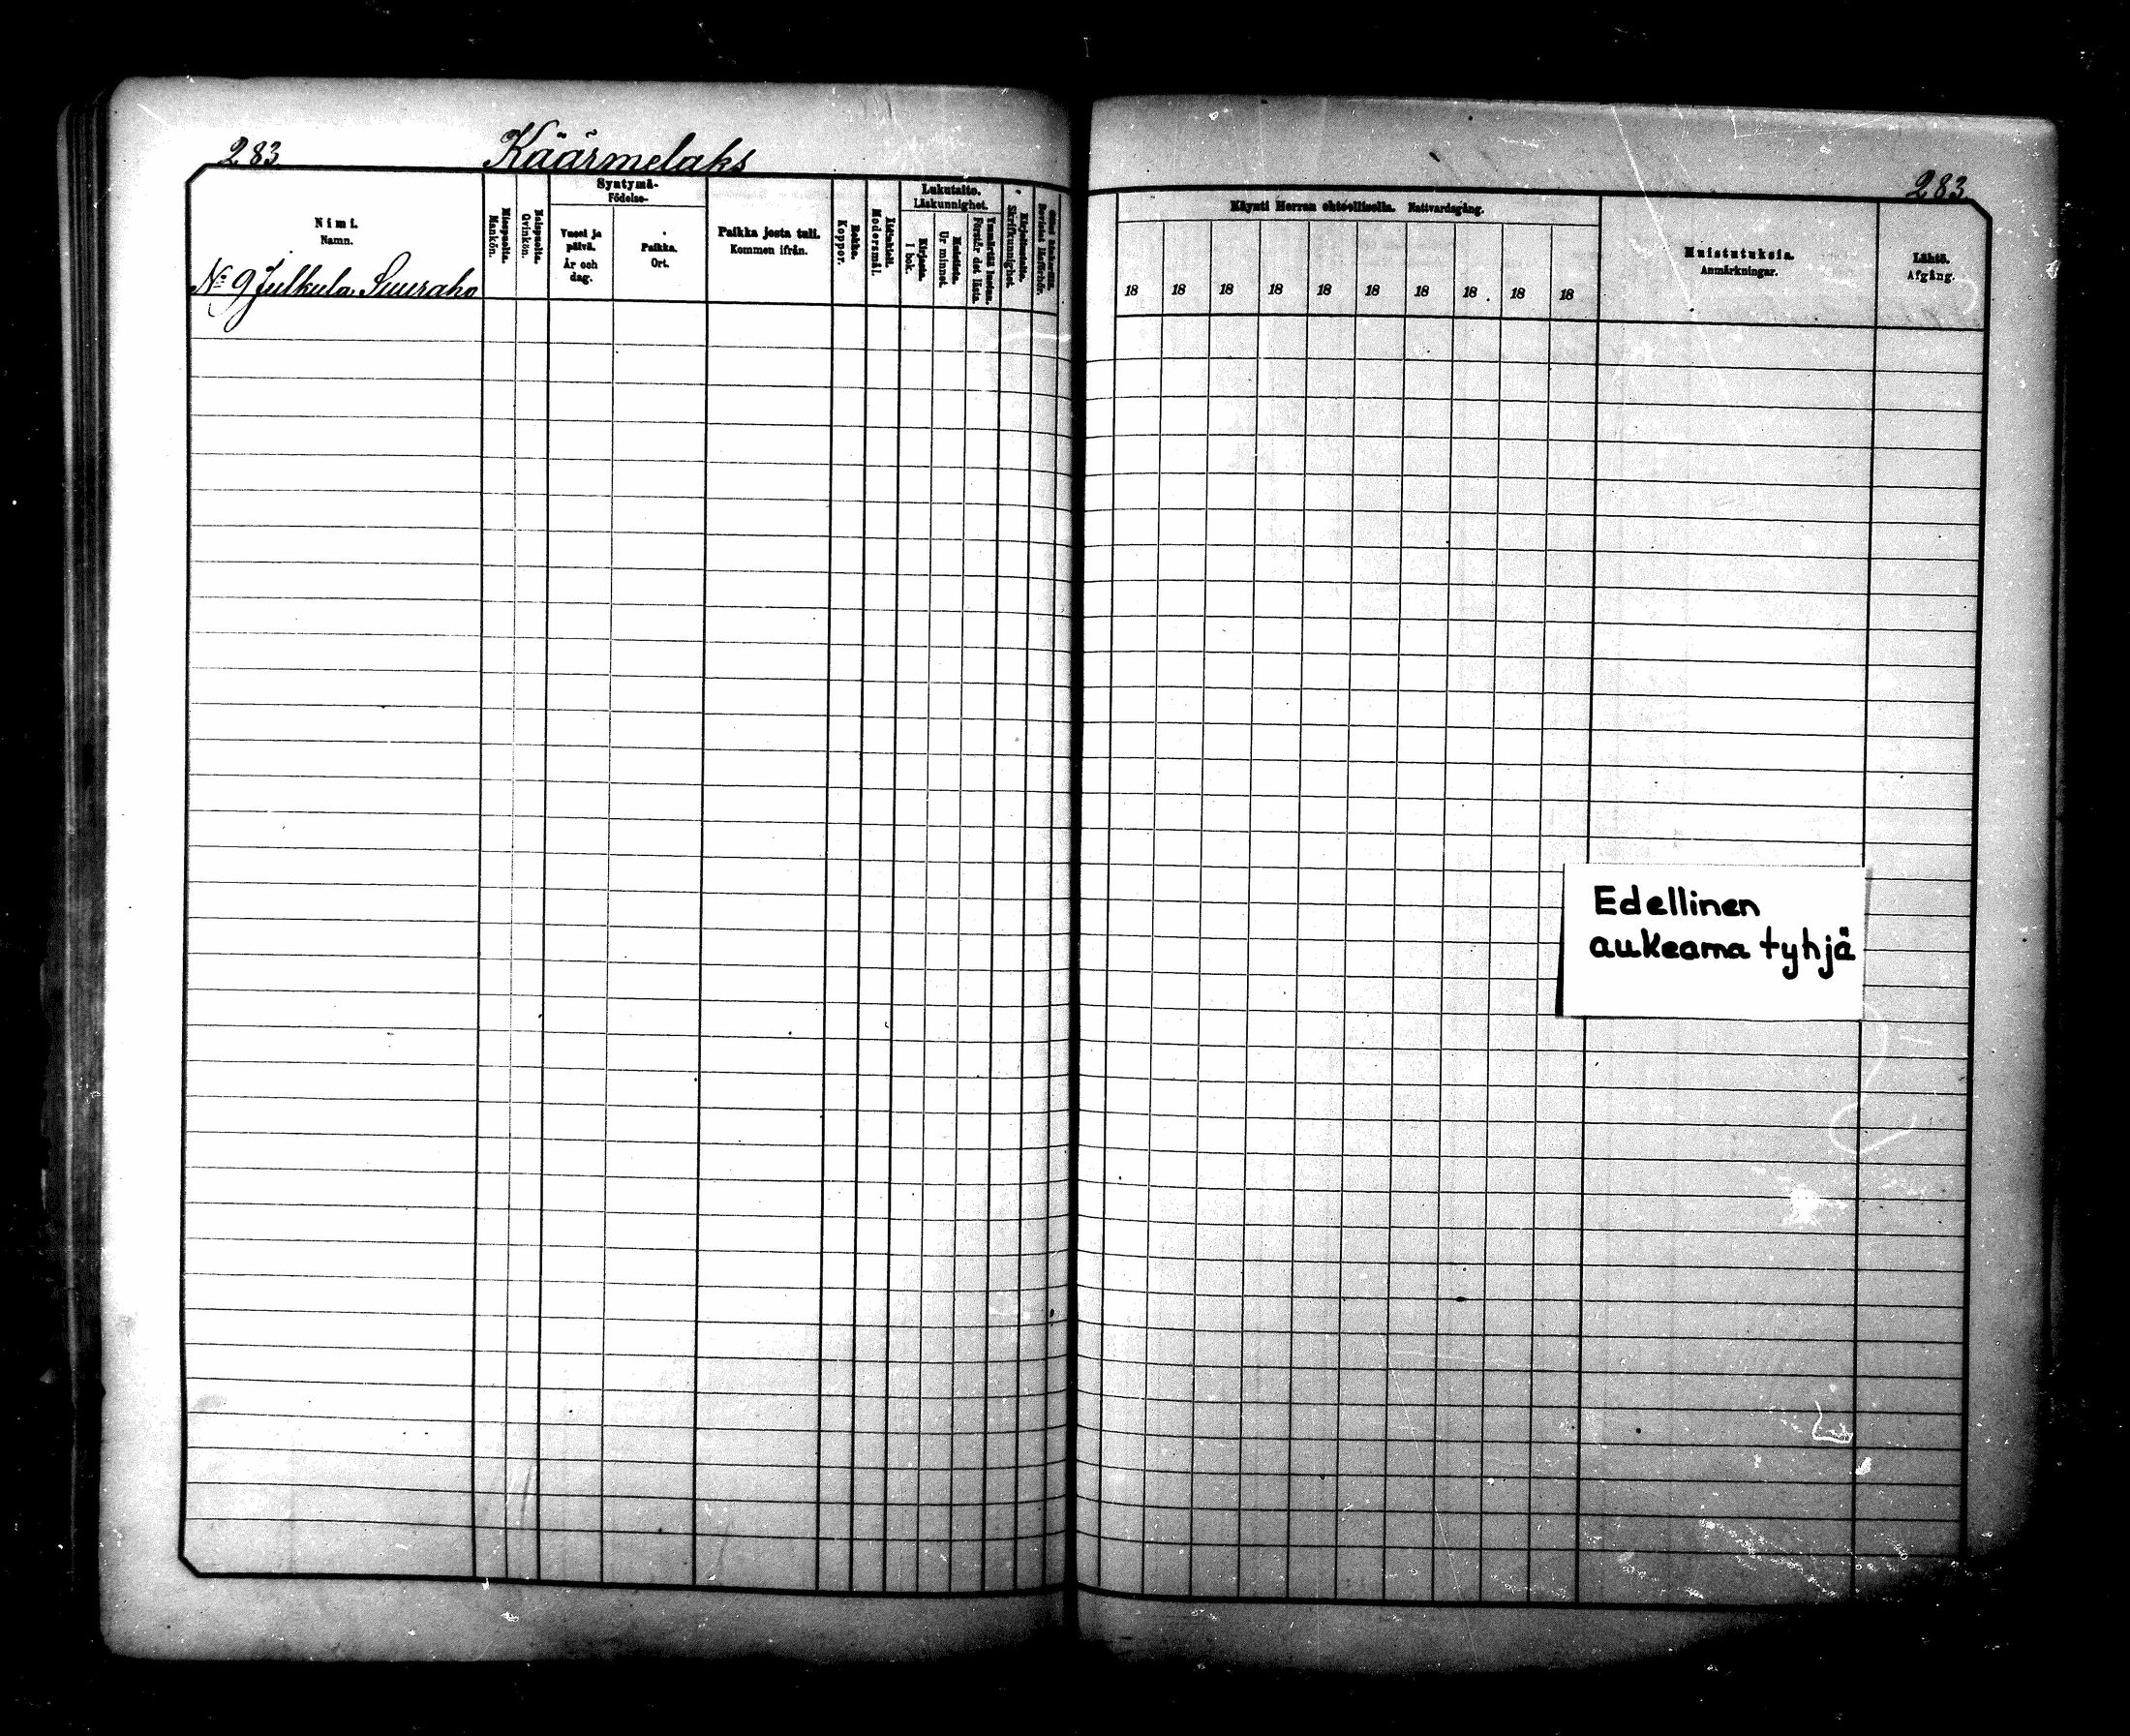 283 Käärmelaks
Nimi.
Namn.
№ 9 Julkula, Suuraho
Miespuolia.
Mankön.
Naispuolia.
Qvinkön.
Syntymä-
Födelse-
Vuosi ja
päivä.
År och
dag.
Paikka.
Ort.
Paikka josta tuli.
Kommen ifrån.
Rokko.
Koppor.
Äidinkieli.
Modersmål.
Lukutaito.
Läskunnighet.
Kirjasta.
I bok.
Muistista.
Ur minnet.
Ymmärtää luetun.
Förstår det lästa.
Kirjoitustaito.
Skrifkunnighet.
283
Käynti Herran ehtoollisella. Nattvardsgång.
18 18 18 18 18 18 18 18 18 18
Muistutuksia.
Anmärkningar.
Lähtö.
Afgång.
Edellinen
aukeama tyhjä